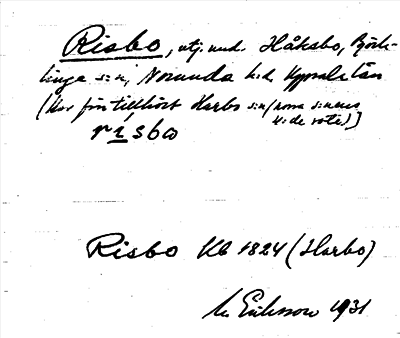 Risbo, utj. und. Håksbo, Björk-
linge sn, Norunda hd, Uppsala län
(Har förr tillhört Harbo sn (samma
hd
rísbω
Risbo Kb 1824 (Harbo)
M. Eriksson 1931